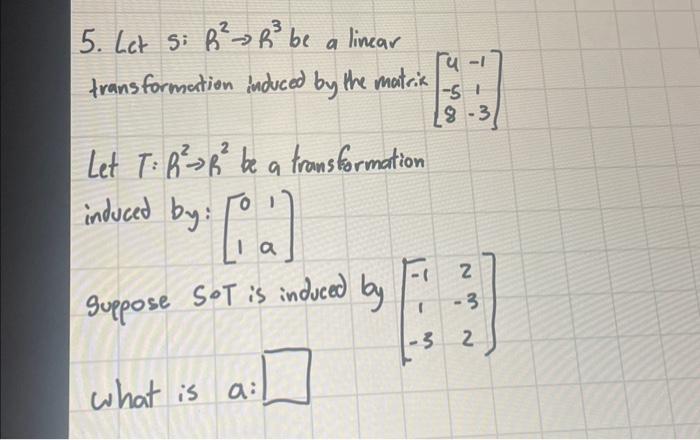 5. Let S: R² → R³ be a linear
transformation induced by the matrix [4 -1
-5 1
8 -3]
Let T: R² → R² be a transformation
induced by: [0 1
1 a]
Suppose S∘T is induced by [-1 2
1 -3
-3 2]
what is a: □